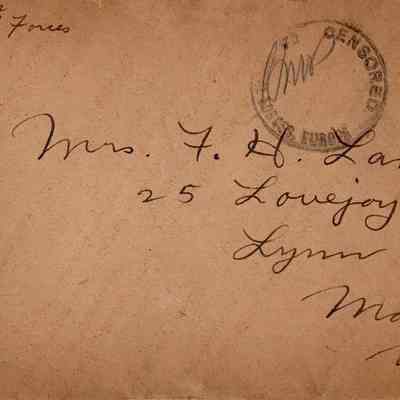 Forces
CENSORED
Mrs. F. H. La
25 Lovejoy
Lynn
Ma